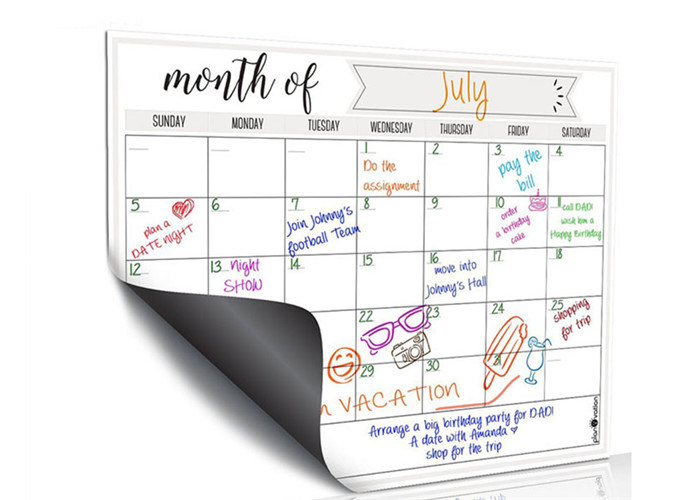 month of July
SUNDAY MONDAY TUESDAY WEDNESDAY THURSDAY FRIDAY SATURDAY
1 2 3 4
Do the
assignment
pay the
bill
5 6 7 8 9 10 11
plan a
DATE NIGHT
Join Johnny's
football Team
order
a birthday
cake
call DAD!
wish him a
Happy Birthday
12 13 14 15 16 17 18
Night
SHOW
move into
Johnny's Hall
22 23 24 25
shopping
for trip
29 30 31
VACATION
Arrange a big birthday party for DAD!
A date with Amanda
shop for the trip
planovation